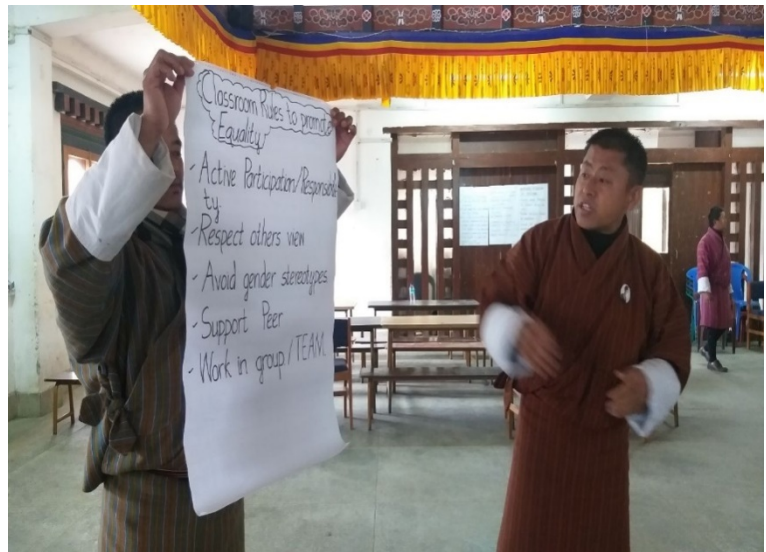 Classroom Rules to promote
Equality
- Active Participation/Responsibili
ty.
- Respect others view
- Avoid gender stereotypes
- Support Peer
- Work in group / TEAM.